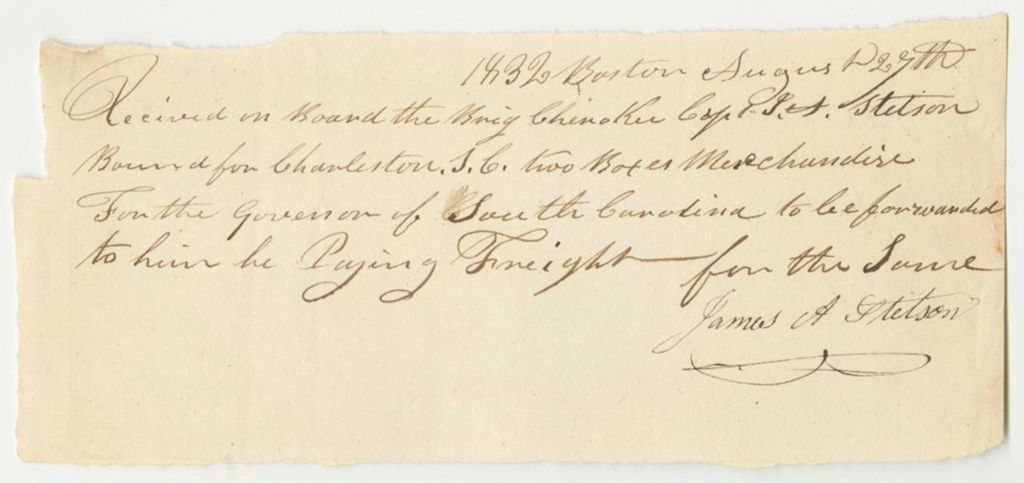 1832 Boston August 27th
Recieved on Board the Brig Cherokee Capt. J. A. Stetson
Bound for Charleston. S. C. two Boxes Merchandize
For the Governor of South Carolina to be forwarded
to him he Paying Freight for the Same
James A Stetson